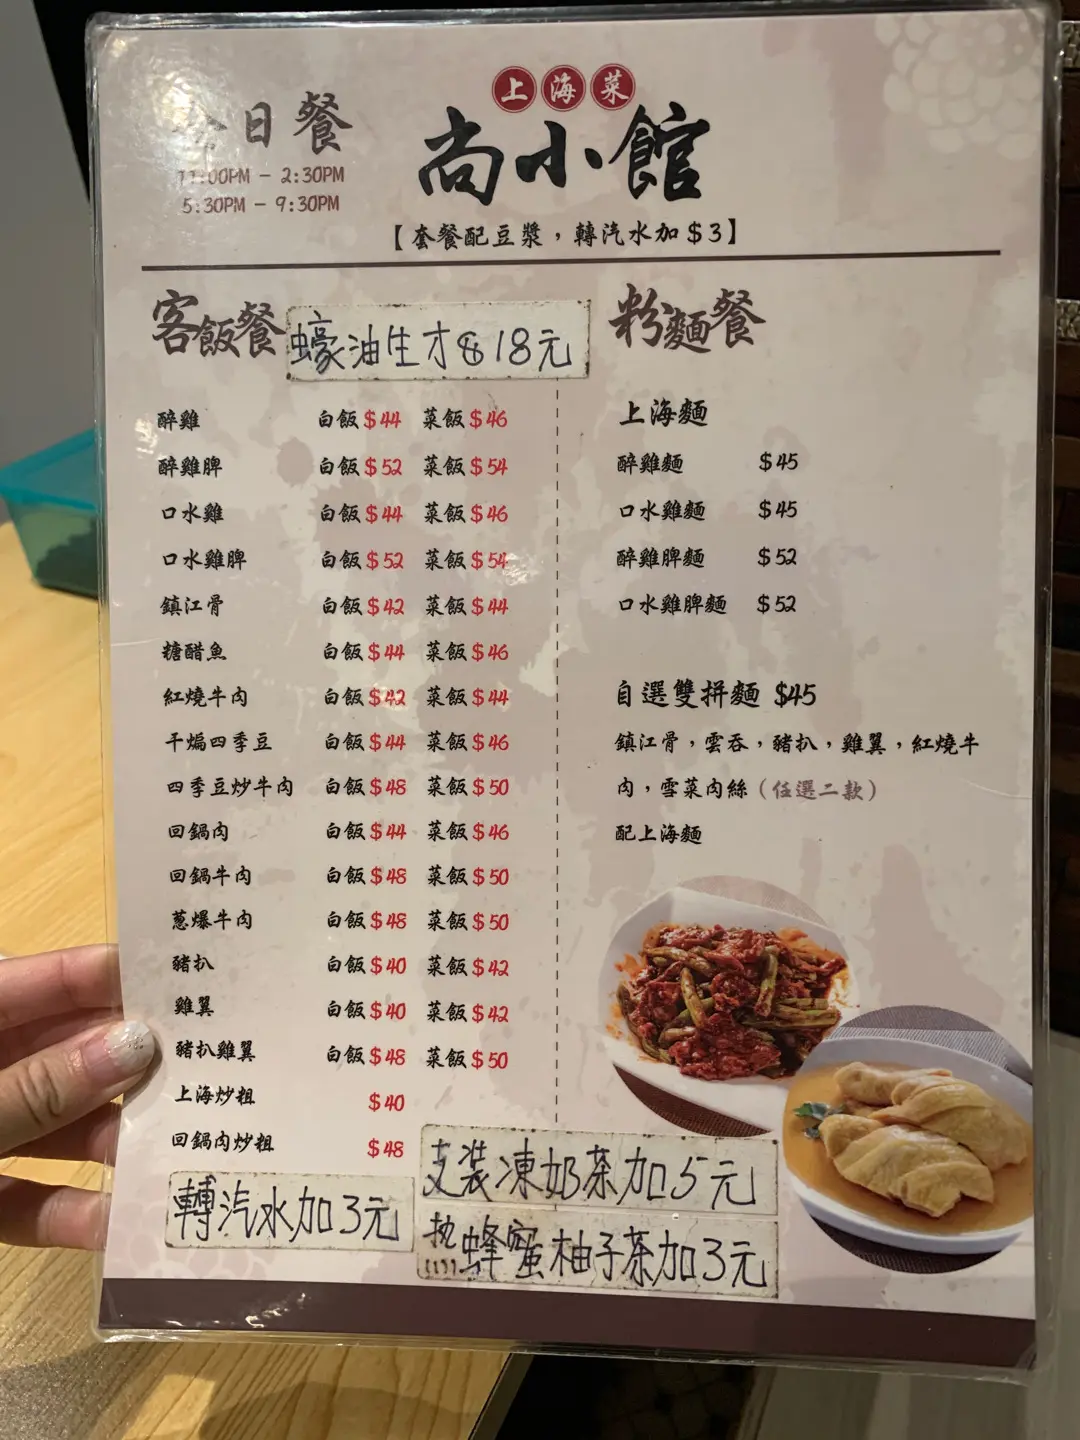 上海菜
尚小館
今日餐
11:00PM - 2:30PM
5:30PM - 9:30PM
【套餐配豆漿，轉汽水加$3】
客飯餐
蠔油生才 18元
醉雞 白飯$44 菜飯$46
醉雞脾 白飯$52 菜飯$54
口水雞 白飯$44 菜飯$46
口水雞脾 白飯$52 菜飯$54
鎮江骨 白飯$42 菜飯$44
糖醋魚 白飯$44 菜飯$46
紅燒牛肉 白飯$42 菜飯$44
干煸四季豆 白飯$44 菜飯$46
四季豆炒牛肉 白飯$48 菜飯$50
回鍋肉 白飯$44 菜飯$46
回鍋牛肉 白飯$48 菜飯$50
蔥爆牛肉 白飯$48 菜飯$50
豬扒 白飯$40 菜飯$42
雞翼 白飯$40 菜飯$42
豬扒雞翼 白飯$48 菜飯$50
上海炒粗 $40
回鍋肉炒粗 $48
轉汽水加3元
支裝凍奶茶加5元
热蜂蜜柚子茶加3元
粉麵餐
上海麵
醉雞麵 $45
口水雞麵 $45
醉雞脾麵 $52
口水雞脾麵 $52
自選雙拼麵 $45
鎮江骨，雲吞，豬扒，雞翼，紅燒牛
肉，雪菜肉絲（任選二款）
配上海麵